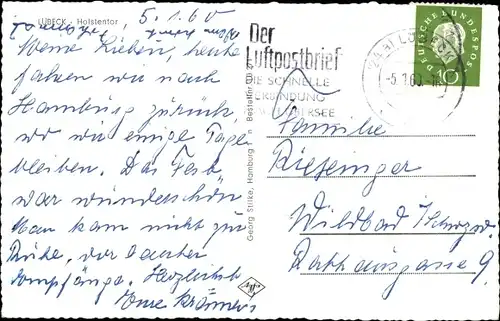 LÜBECK - Holstentor
5.1.60
Meine Lieben, heute
fahren wir nach
Hamburg zurück,
wo wir einige Tage
bleiben. Das Fest
war wunderschön
Man kam nicht zur
Ruhe, vor lauter
Empfänge. Herzlichst
Eure
Georg Stilke, Hamburg
Bestell Nr.
Agfa
Der
Luftpostbrief
DIE SCHNELLE
VERBINDUNG
ÜBERSEE
(24a) LÜBECK
-5.1.60
DEUTSCHE BUNDESPOST
10
Familie
Riesinger
Wildbad Schwzw.
Rathausgasse 9.